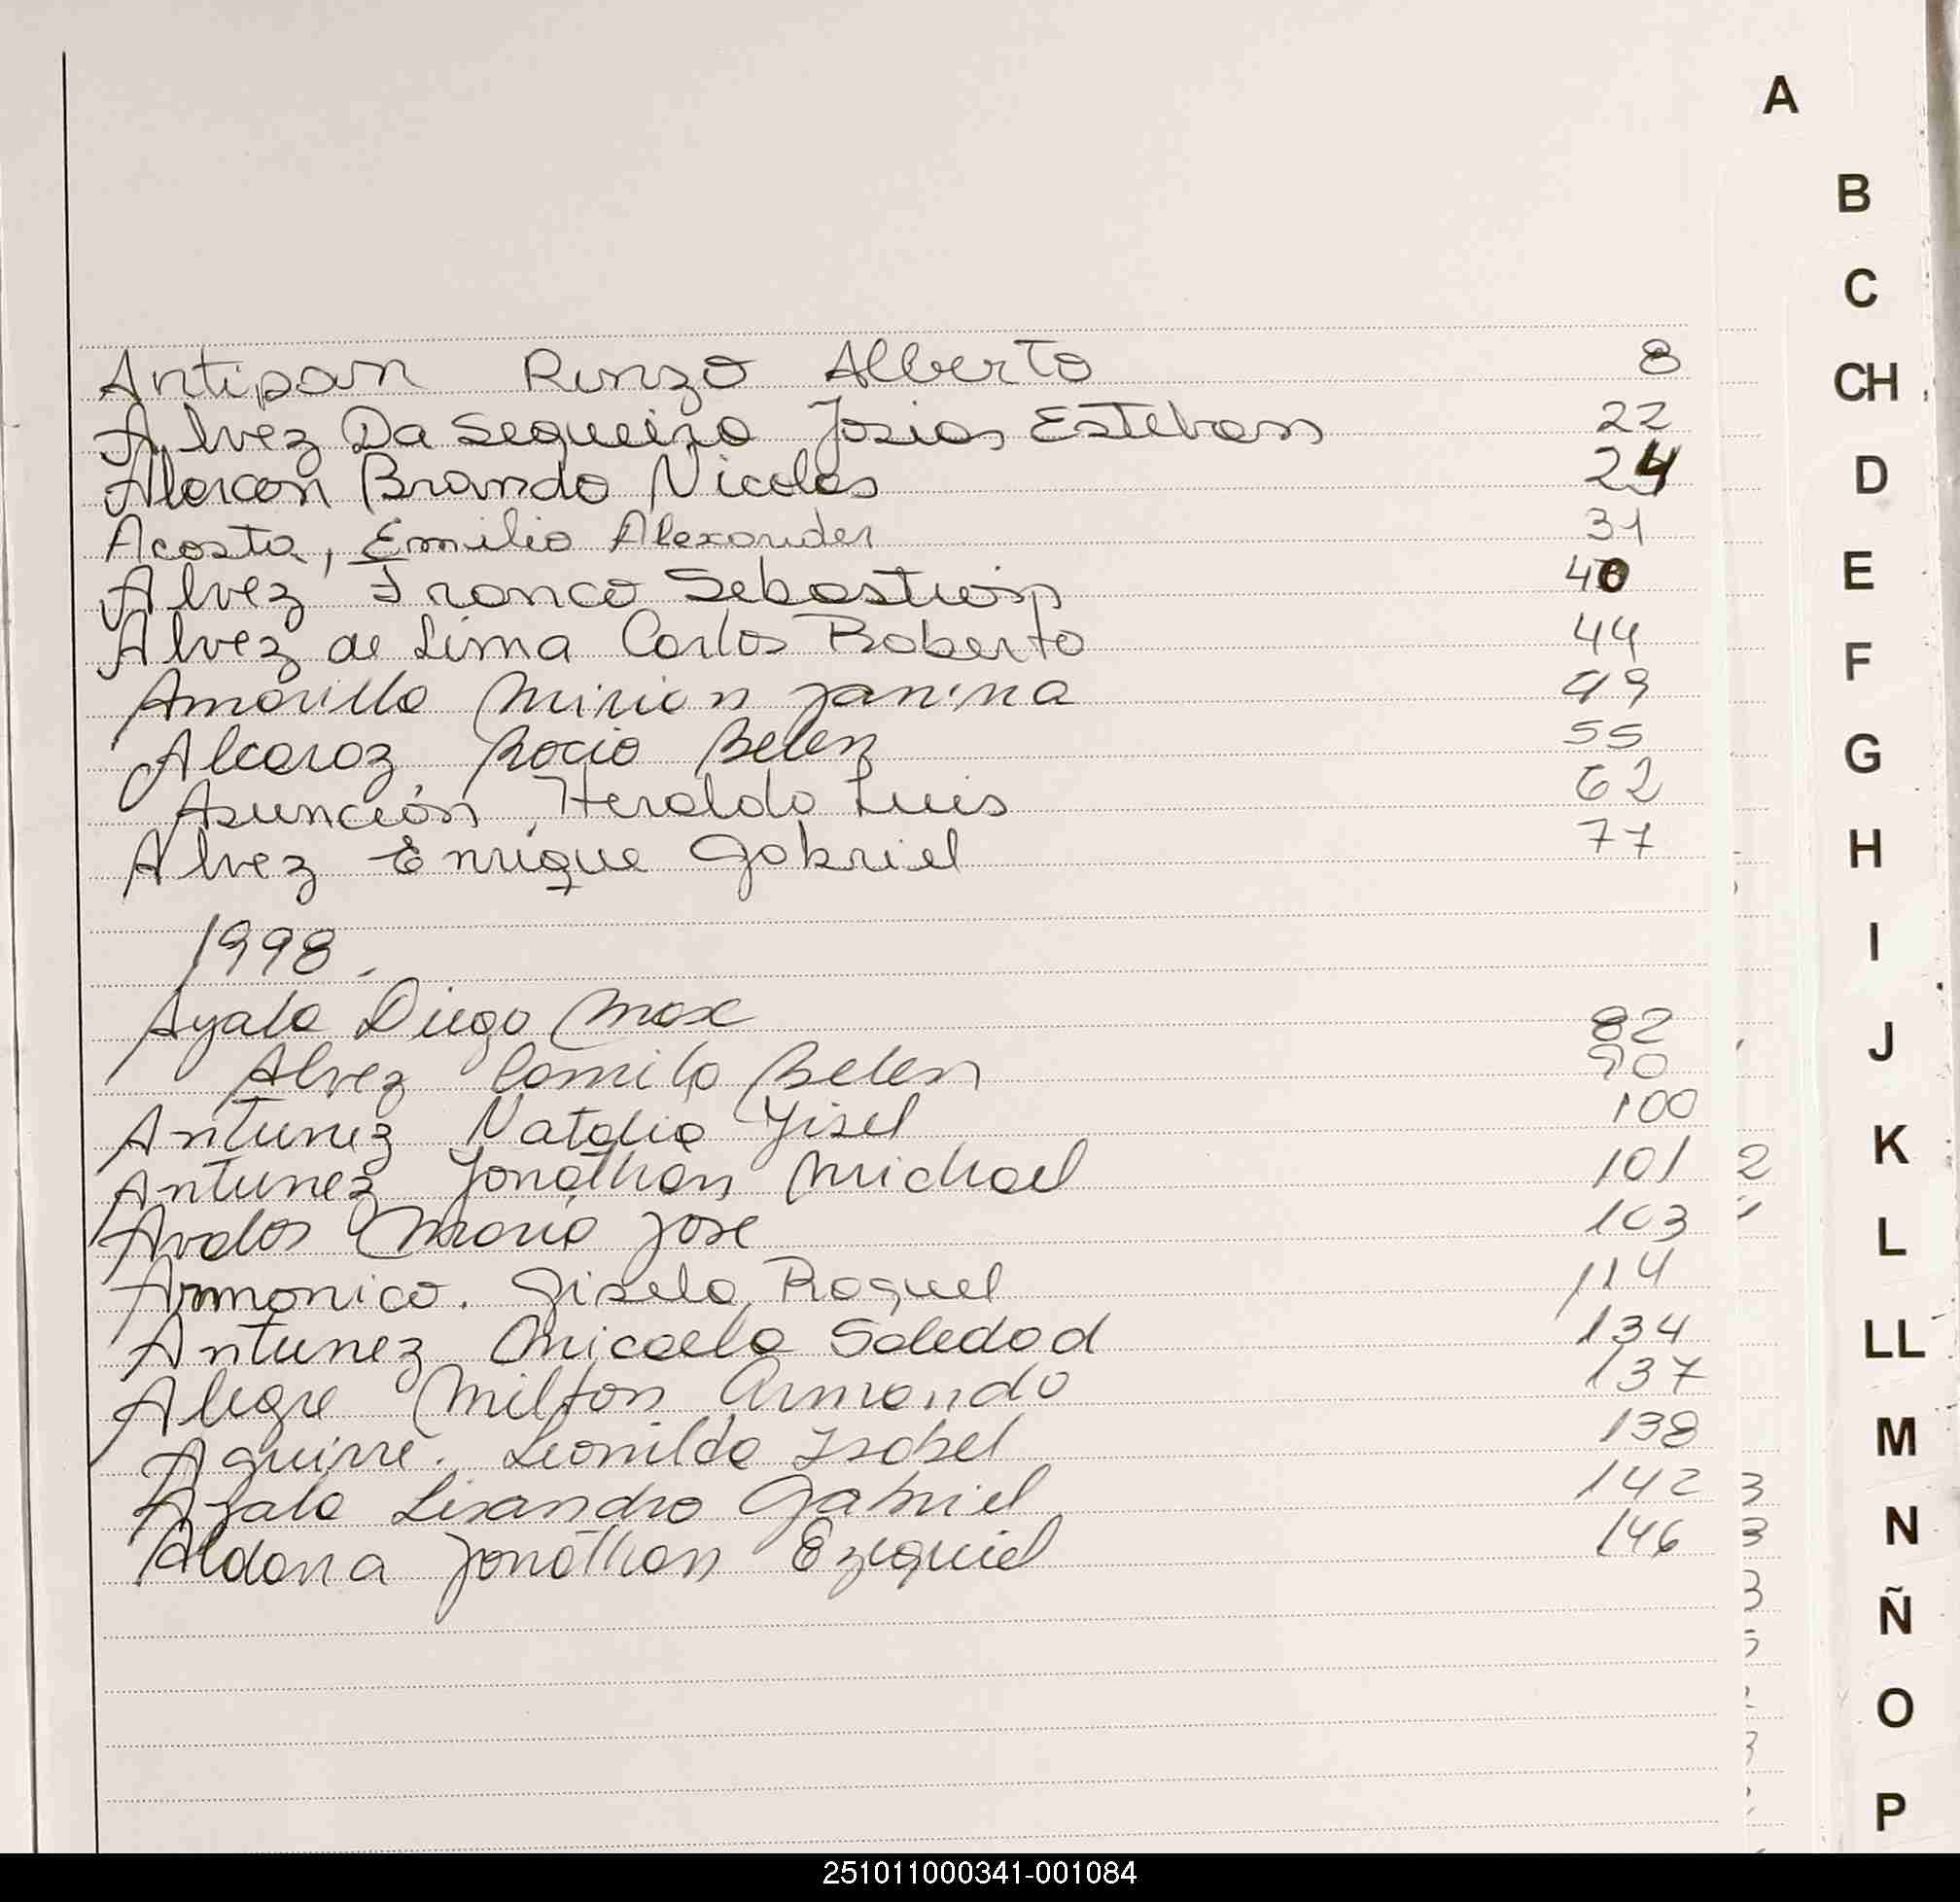 A
B
C
CH
D
E
F
G
H
I
J
K
L
LL
M
N
Ñ
O
P
Antipan Renzo Alberto 8
Alvez Da Sequeira Josias Esteban 22
Alarcon Brando Nicolas 24
Acosta, Emilio Alexander 31
Alvez Franco Sebastian 40
Alvez de Lima Carlos Roberto 44
Amarilla Mirian Janina 49
Alcaraz Rocio Belen 55
Asunción, Heraldo Luis 62
Alvez Enrique Gabriel 77
1998.
Ayala Diego Max 82
Alvez Camila Belen 90
Antunez Natalia Yisel 100
Antunez Jonathan Michael 101
Avalos Maria Jose 103
Armonico. Gisela Raquel 114
Antunez Micaela Soledad 134
Alegre Milton Armando 137
Aguirre. Leonilda Isabel 138
Ayala Lisandro Gabriel 142
Aldana Jonathan Ezequiel 146
251011000341-001084